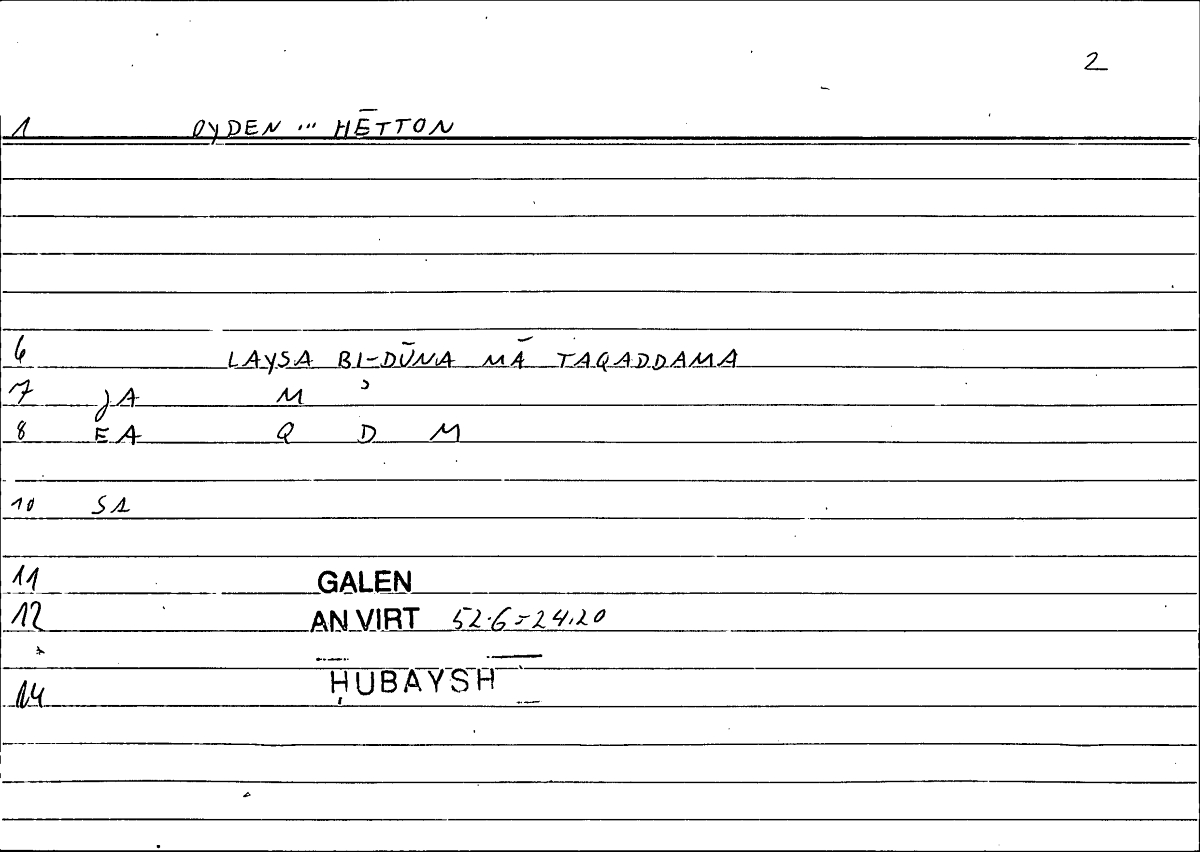 2
1 OYDEN ... HĒTTON
6 LAYSA BI-DŪNA MĀ TAQADDAMA
7 JA M ʾ
8 EA Q D M
10 SA
11 GALEN
12 AN VIRT 52.6=24.20
14 ḤUBAYSH